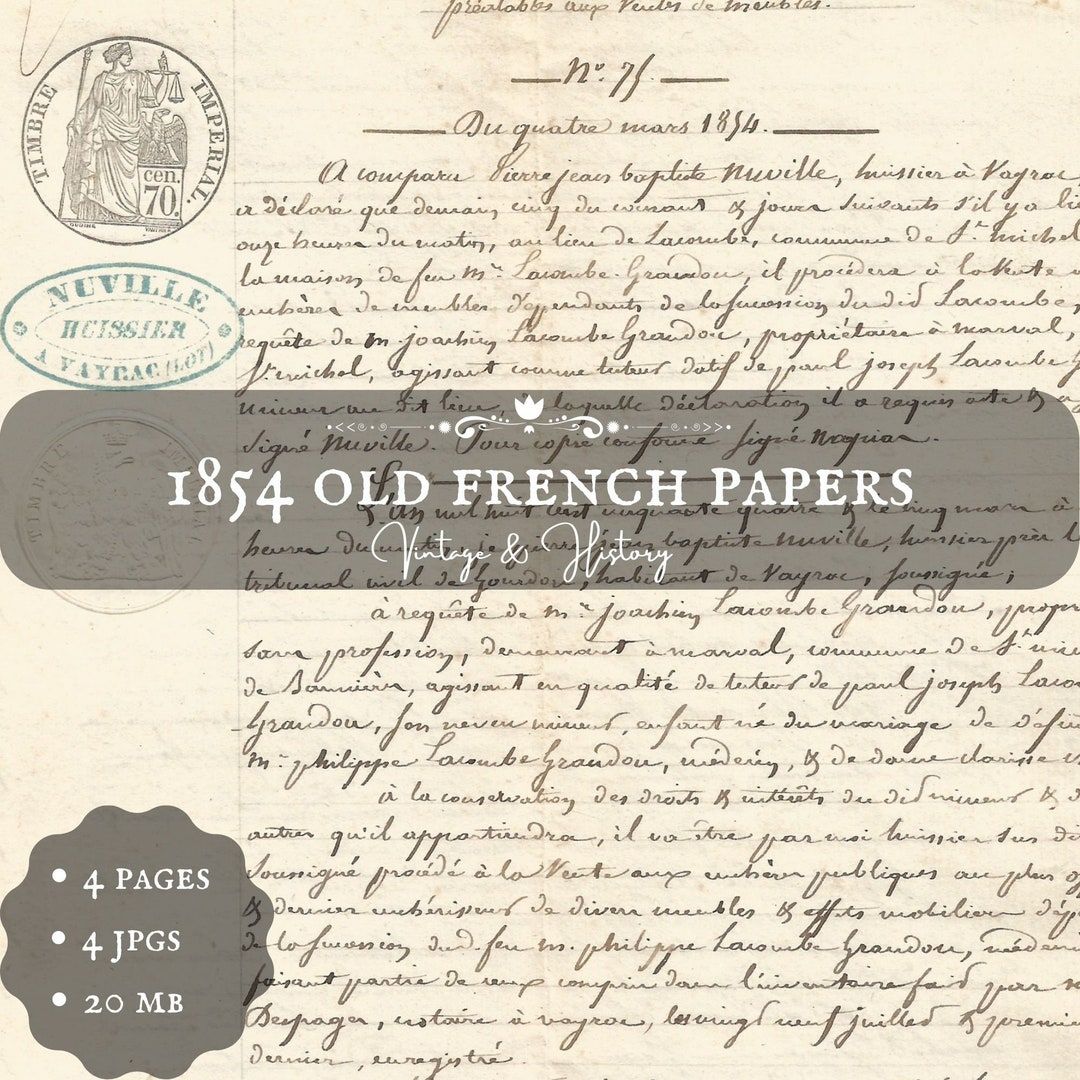 préalables aux Ventes de meubles.
Nº. 75.
Du quatre mars 1854.
TIMBRE IMPERIAL.
cen.
70.
NUVILLE
HUISSIER
A VAYRAC (LOT)
A comparu Pierre jean baptiste Nuville, huissier à Vayrac
a déclaré que demain, cinq du courant & jours suivants s'il y a
onze heures du matin, au lieu de Lacombe, commune de St. michel
la maison de feu Mr. Lacombe Grandou, il procédera à la Vente
enchères de meubles dépendants de la succession du did Lacombe,
requête de m. joachim Lacombe Grandou, propriétaire à marval,
St. michel, agissant comme tuteur datif de paul joseph Lacombe
mineur au dit lieu, laquelle déclaration il a requis acte &
signé Nuville. Pour copie conforme signé
1854 OLD FRENCH PAPERS
Vintage & History
TIMBRE
L'an mil huit cent cinquante quatre & le cinq mars à
heures du matin, je pierre jean baptiste Nuville, huissier près
tribunal civil de Gourdon, habitant de Vayrac, soussigné;
à requête de mr. joachim Lacombe Grandou,
sans profession, demeurant à marval, commune de St.
de Bannières, agissant en qualité de tuteur de paul joseph
Grandou, son neveu mineur, enfant né du mariage de
mr. philippe Lacombe Grandou, médecin, & de dame clarisse
à la conservation des droits & intérêts du did mineur &
autres qu'il appartiendra, il va être par moi huissier sus
soussigné procédé à la Vente aux enchères publiques au plus
& dernier enchérisseur de divers meubles & effets mobiliers
de la succession dud. feu m. philippe Lacombe Grandou,
faisant partie de ceux compris dans l'inventaire fait par
Despages, notaire à vayrac, les vingt neuf juillet &
dernier, enregistré.
• 4 PAGES
• 4 JPGS
• 20 MB